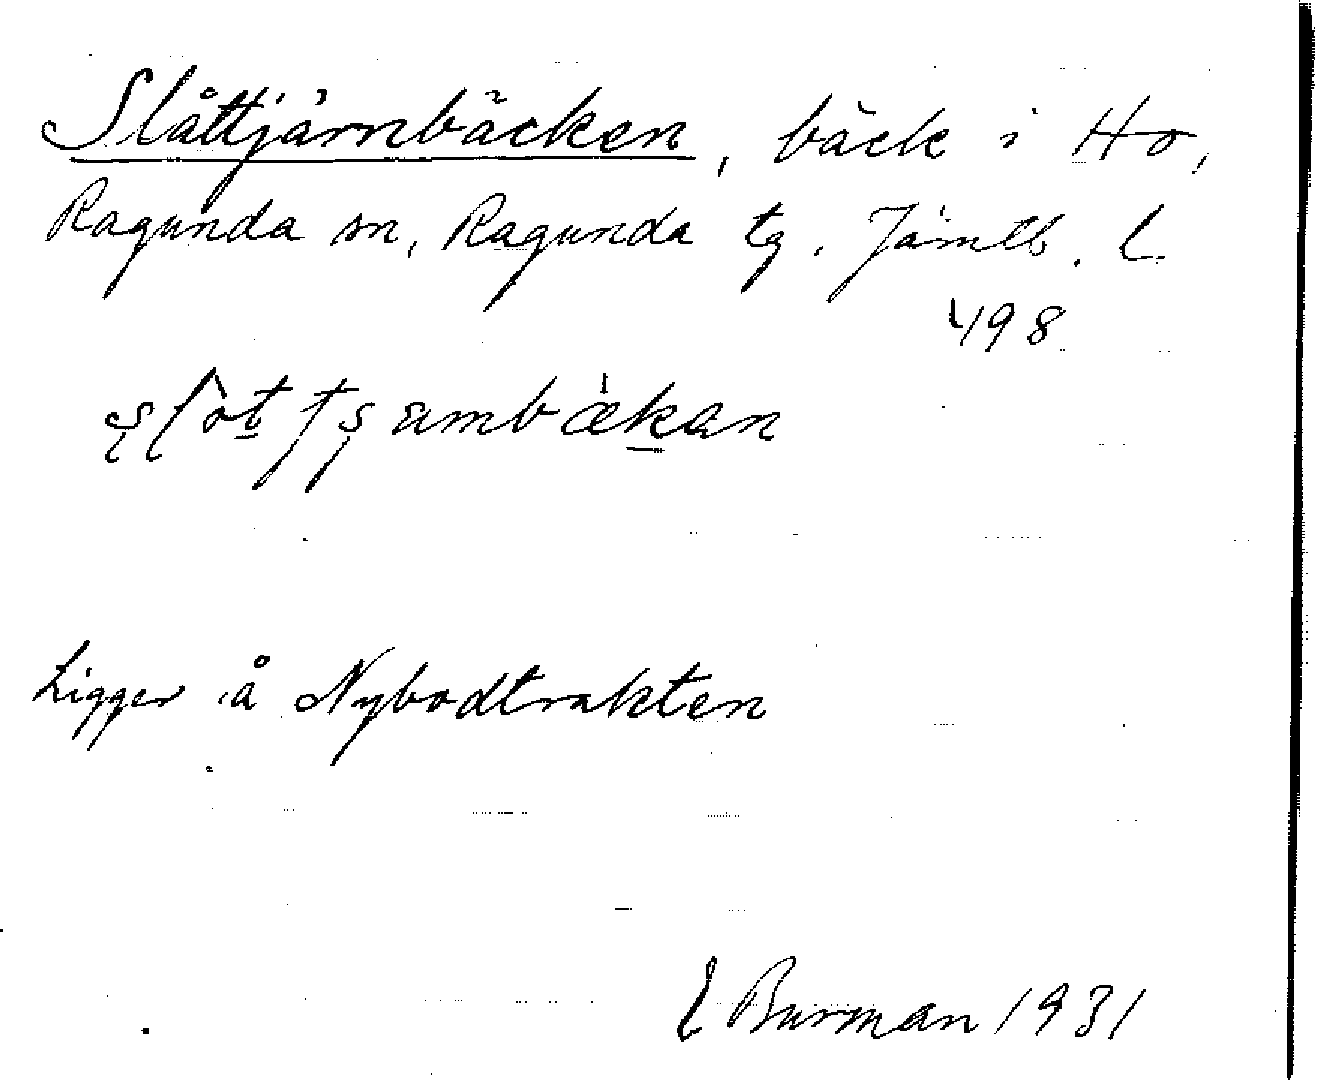 Slåttjärnbäcken, bäck i Ho,
Ragunda sn, Ragunda tg. Jämtl. l.
498
Ligger å Nybodtrakten
E Burman 1931